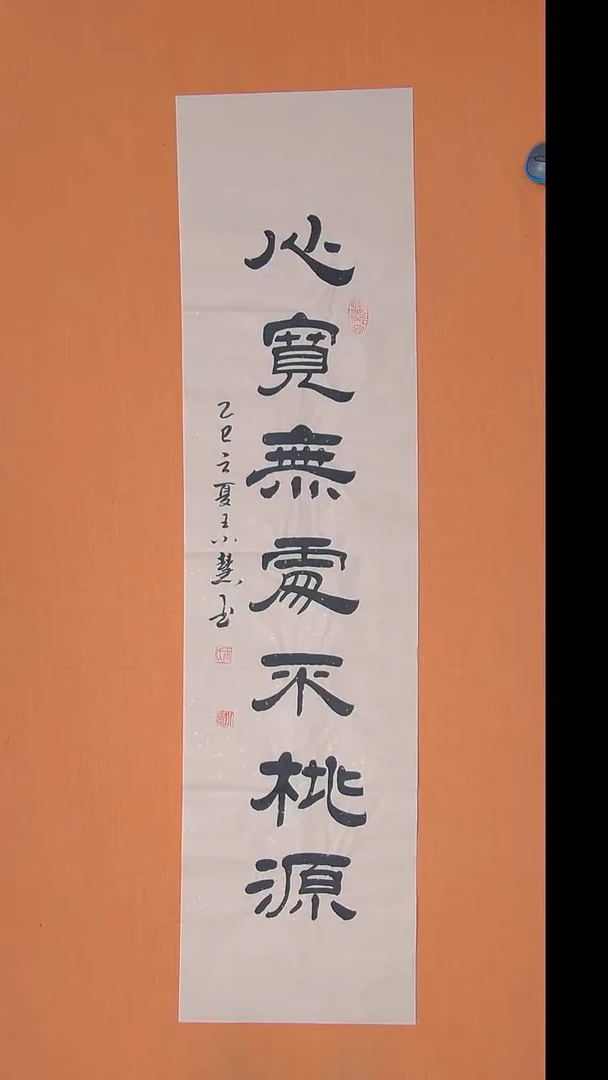 心寬無處不桃源
乙巳之夏王小慧书